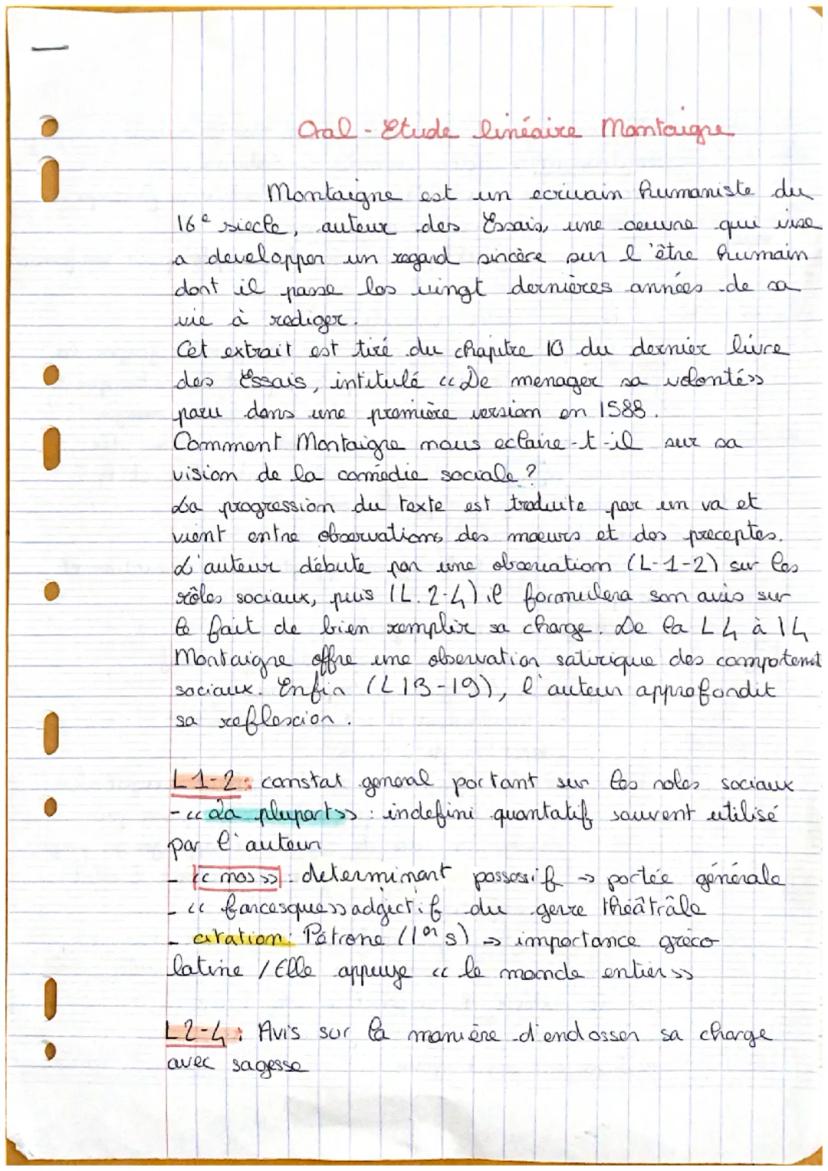 Oral - Etude linéaire Montaigne
Montaigne est un ecrivain humaniste du
16e siecle, auteur des Essais, une oeuvre qui vise
a developper un regard sincère sur l'être humain
dont il passe les vingt dernières années de sa
vie à rediger.
Cet extrait est tiré du chapitre 10 du dernier livre
des Essais, intitulé «De menager sa volonté»
paru dans une première version en 1588.
Comment Montaigne nous eclaire-t-il sur sa
vision de la comédie sociale ?
La progression du texte est traduite par un va et
vient entre observations des moeurs et des preceptes.
L'auteur débute par une observation (L-1-2) sur les
rôles sociaux, puis (L. 2-4) il formulera son avis sur
le fait de bien remplir sa charge. De la L4 à 14
Montaigne offre une observation satirique des comportemt
sociaux. Enfin (L13-19), l'auteur approfondit
sa reflexion.
L1-2: constat general portant sur les roles sociaux
- «La plupart» : indefini quantatif souvent utilisé
par l'auteur
- «nos» determinant possessif → portée générale
- «farcesque» adjectif du genre théâtrâle
- citation: Pétrone (1er s) → importance gréco
latine / Elle appuye «le monde entier»
L2-4: Avis sur la manière d'endosser sa charge
avec sagesse